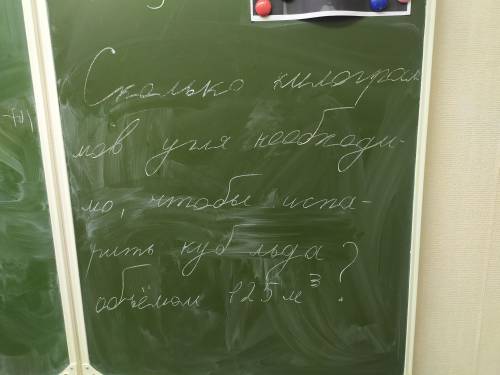 Сколько килограм
мов угля необходи-
мо, чтобы испа-
рить куб льда
объёмом 125 м³?